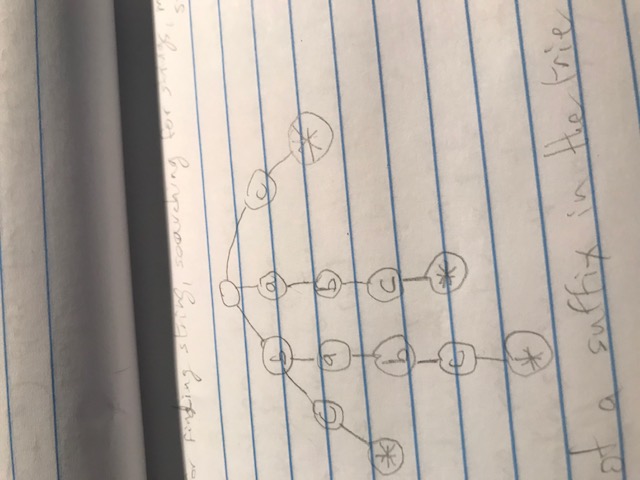 or finding string, searching for
b a c
c a b *
* b c
c *
*
of a suffix in the trie